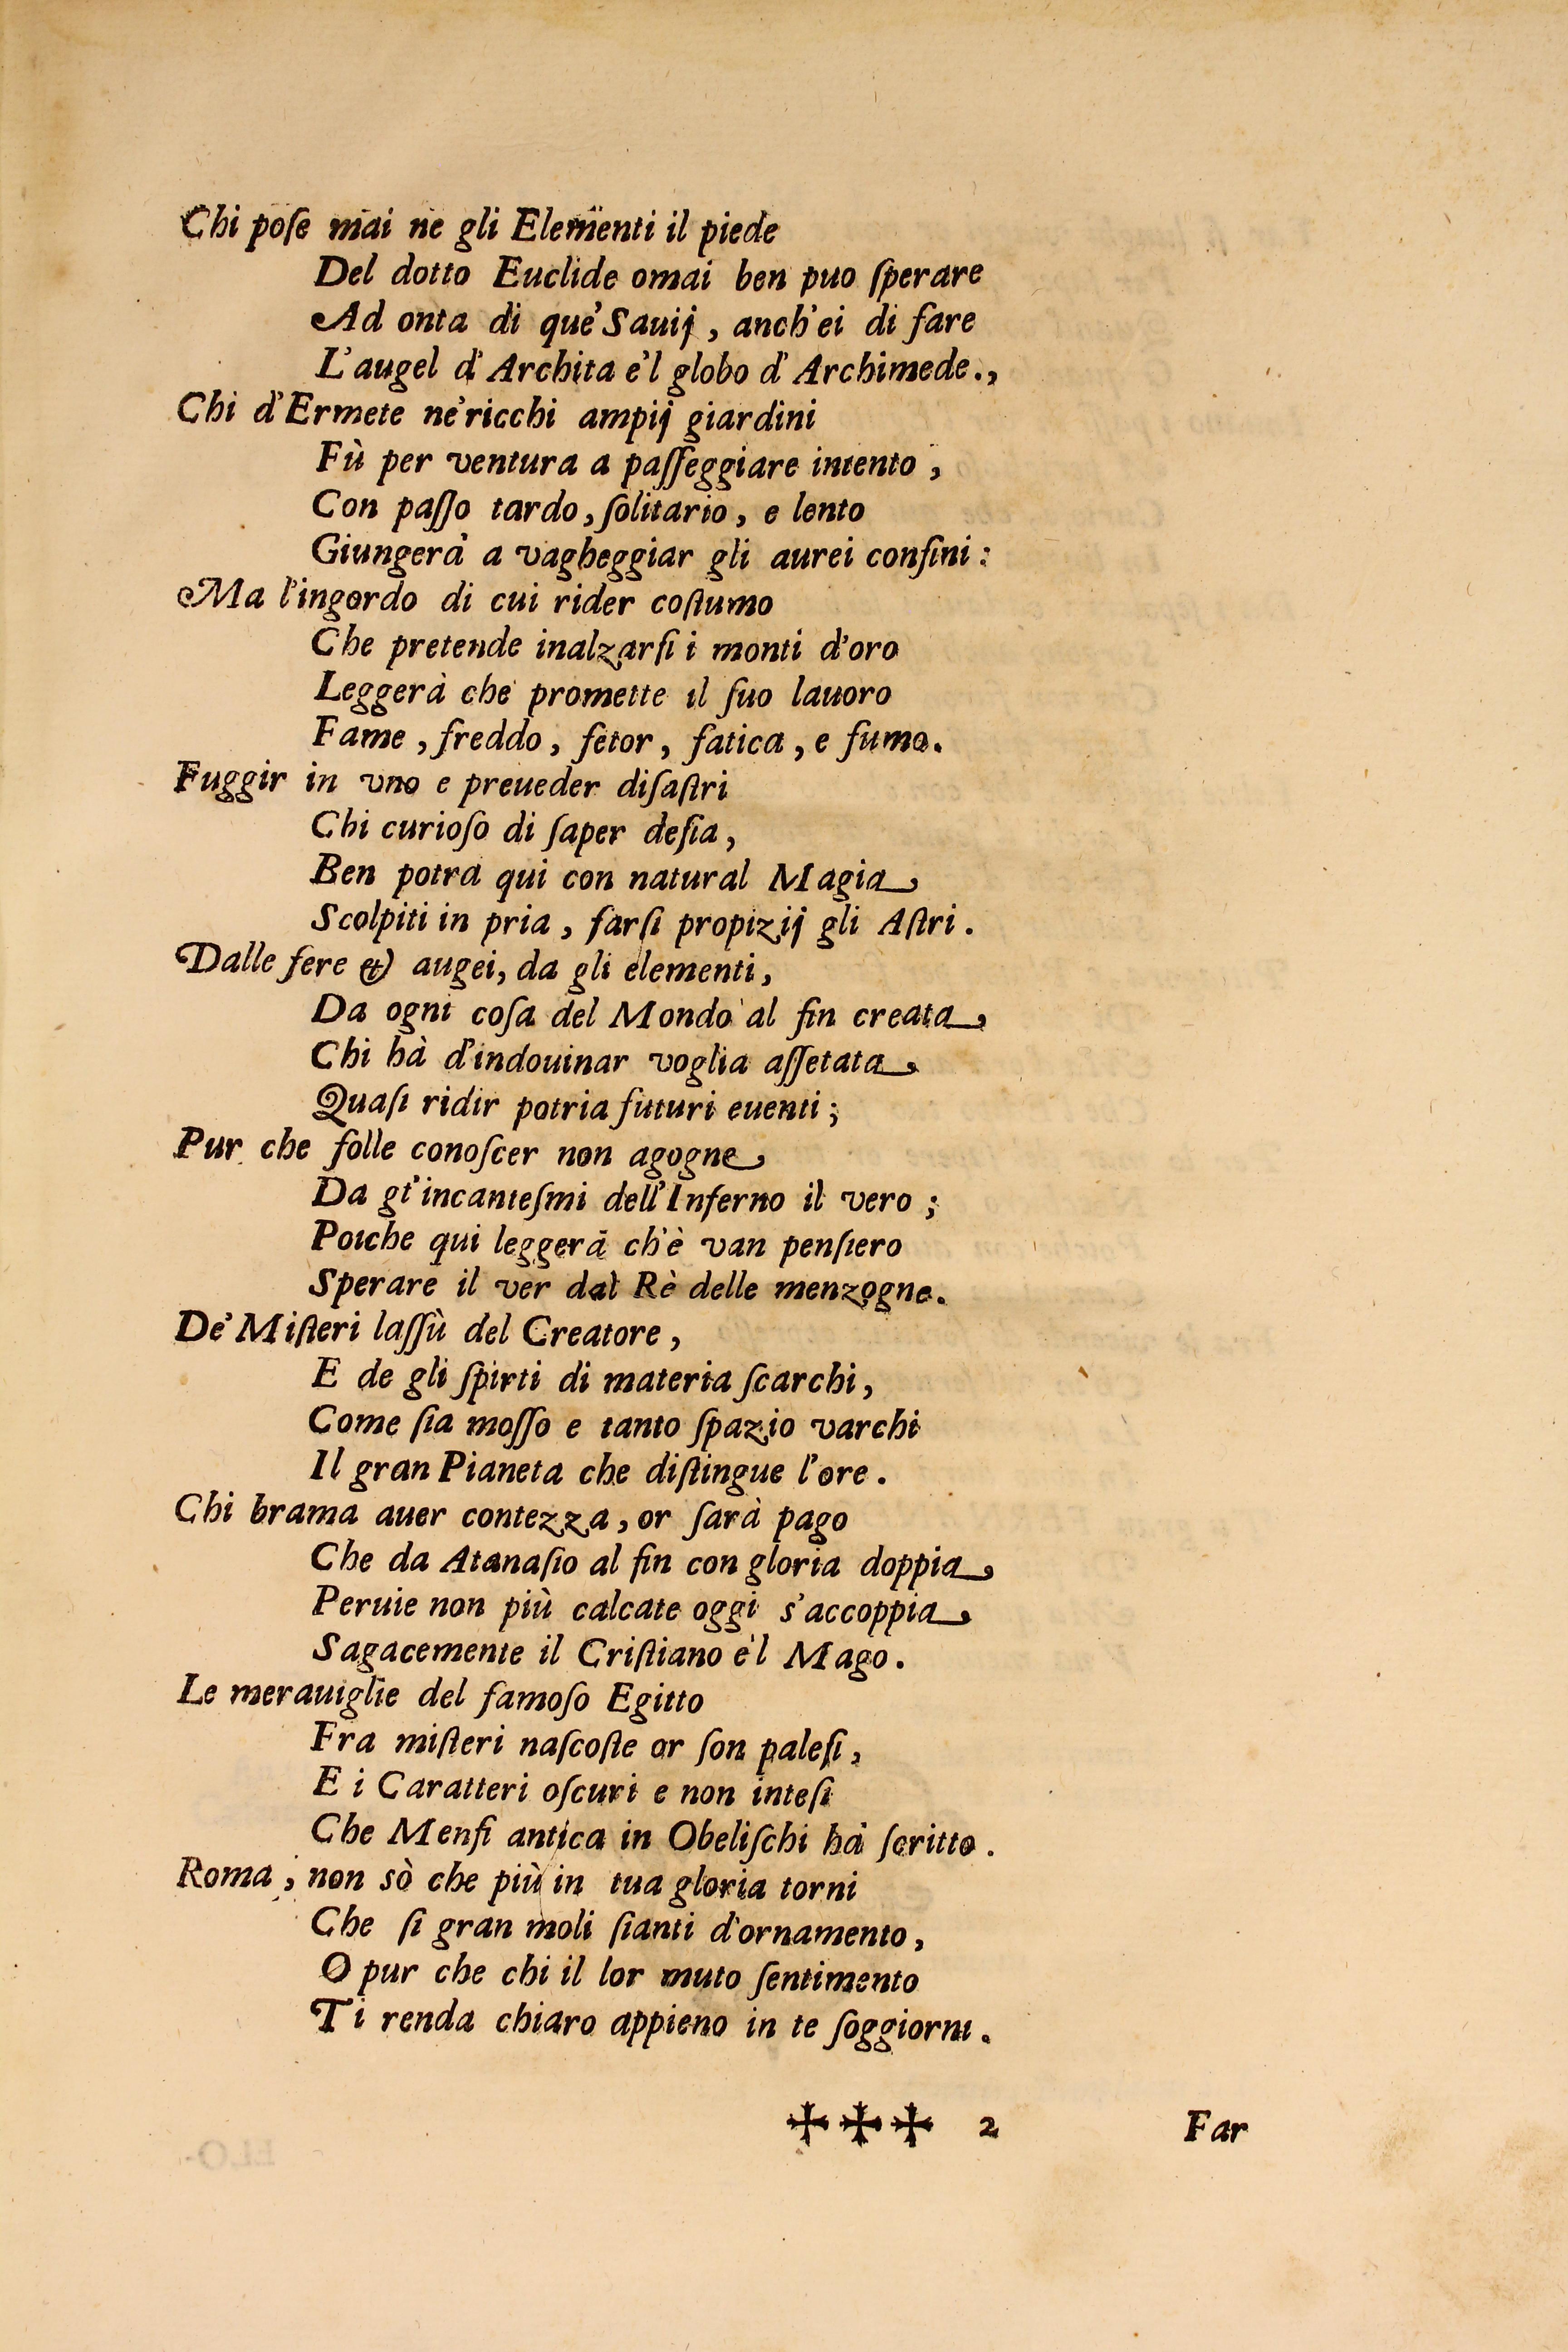 Chi poſe mai ne gli Elementi il piede
Del dotto Euclide omai ben puo ſperare
Ad onta di que' Sauij, anch'ei di fare
L'augel d'Archita e'l globo d'Archimede.,
Chi d'Ermete ne' ricchi ampij giardini
Fù per ventura a paſſeggiare intento,
Con paſſo tardo, ſolitario, e lento
Giungerà a vagheggiar gli aurei confini:
Ma l'ingordo di cui rider coſtumo
Che pretende inalzarſi i monti d'oro
Leggerà che promette il ſuo lauoro
Fame, freddo, fetor, fatica, e fumo.
Fuggir in vno e preueder diſaſtri
Chi curioſo di ſaper deſia,
Ben potra qui con natural Magia
Scolpiti in pria, farſi propizij gli Aſtri.
Dalle fere & augei, da gli elementi,
Da ogni coſa del Mondo al fin creata
Chi hà d'indouinar voglia aſſetata
Quaſi ridir potria futuri euenti;
Pur che folle conoſcer non agogne
Da gl'incanteſmi dell'Inferno il vero;
Poiche qui leggerà ch'è van penſiero
Sperare il ver dal Rè delle menzogne.
De' Miſteri laſſù del Creatore,
E de gli ſpirti di materia ſcarchi,
Come ſia moſſo e tanto ſpazio varchi
Il gran Pianeta che diſtingue l'ore.
Chi brama auer contezza, or ſarà pago
Che da Atanaſio al fin con gloria doppia
Peruie non più calcate oggi s'accoppia
Sagacemente il Criſtiano e'l Mago.
Le merauiglie del famoſo Egitto
Fra miſteri naſcoſte or ſon paleſi,
E i Caratteri oſcuri e non inteſi
Che Menfi antica in Obeliſchi hà ſcritto.
Roma, non sò che più in tua gloria torni
Che ſi gran moli ſianti d'ornamento,
O pur che chi il lor muto ſentimento
Ti renda chiaro appieno in te ſoggiorni.
✠✠✠ 2 Far